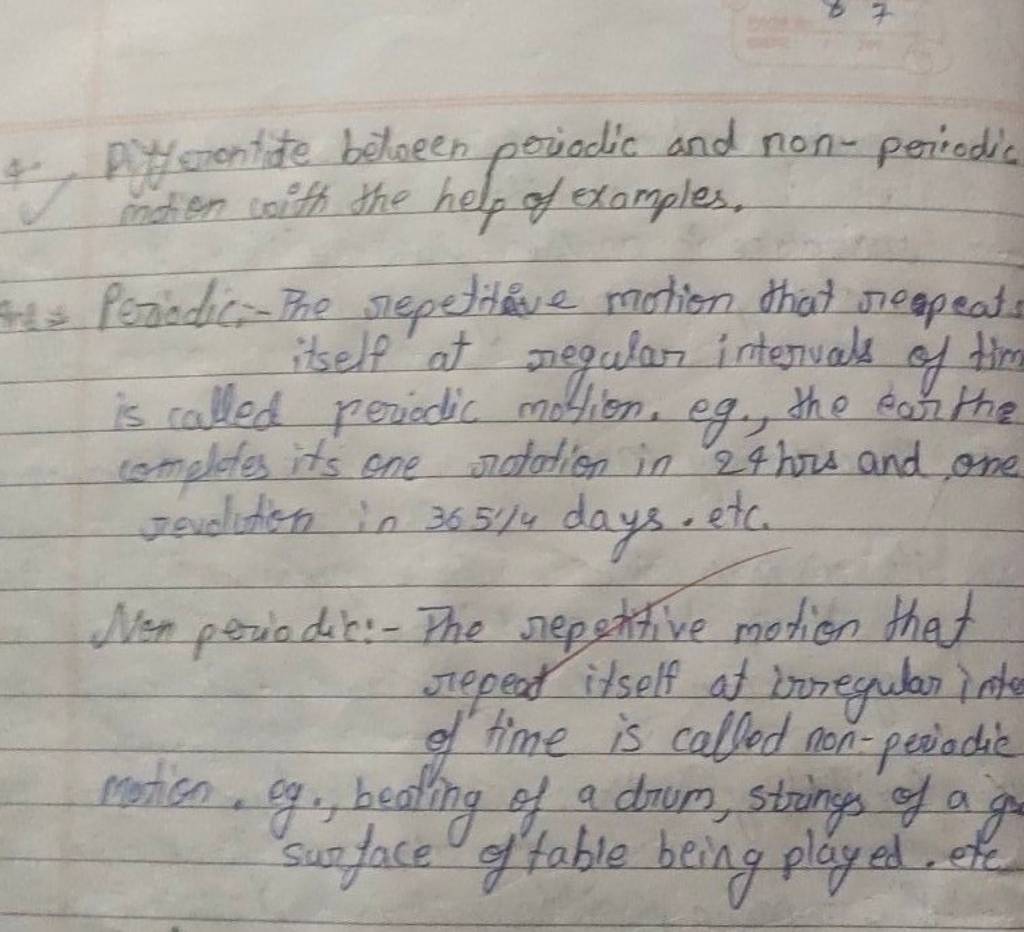 8 7
4. Differentite between periodic and non- periodic
motion with the help of examples.
Periodic:- The repetitive motion that reapeats
itself at regular intervals of tim
is called periodic motion. eg., the earthe
completes its one rotation in 24 hrs and one
revolution in 365 1/4 days. etc.
Non periodic:- The repetitive motion that
repeat itself at irregular inte
of time is called non-periodic
motion. eg., beating of a drum, strings of a gu
surface of table being played. etc